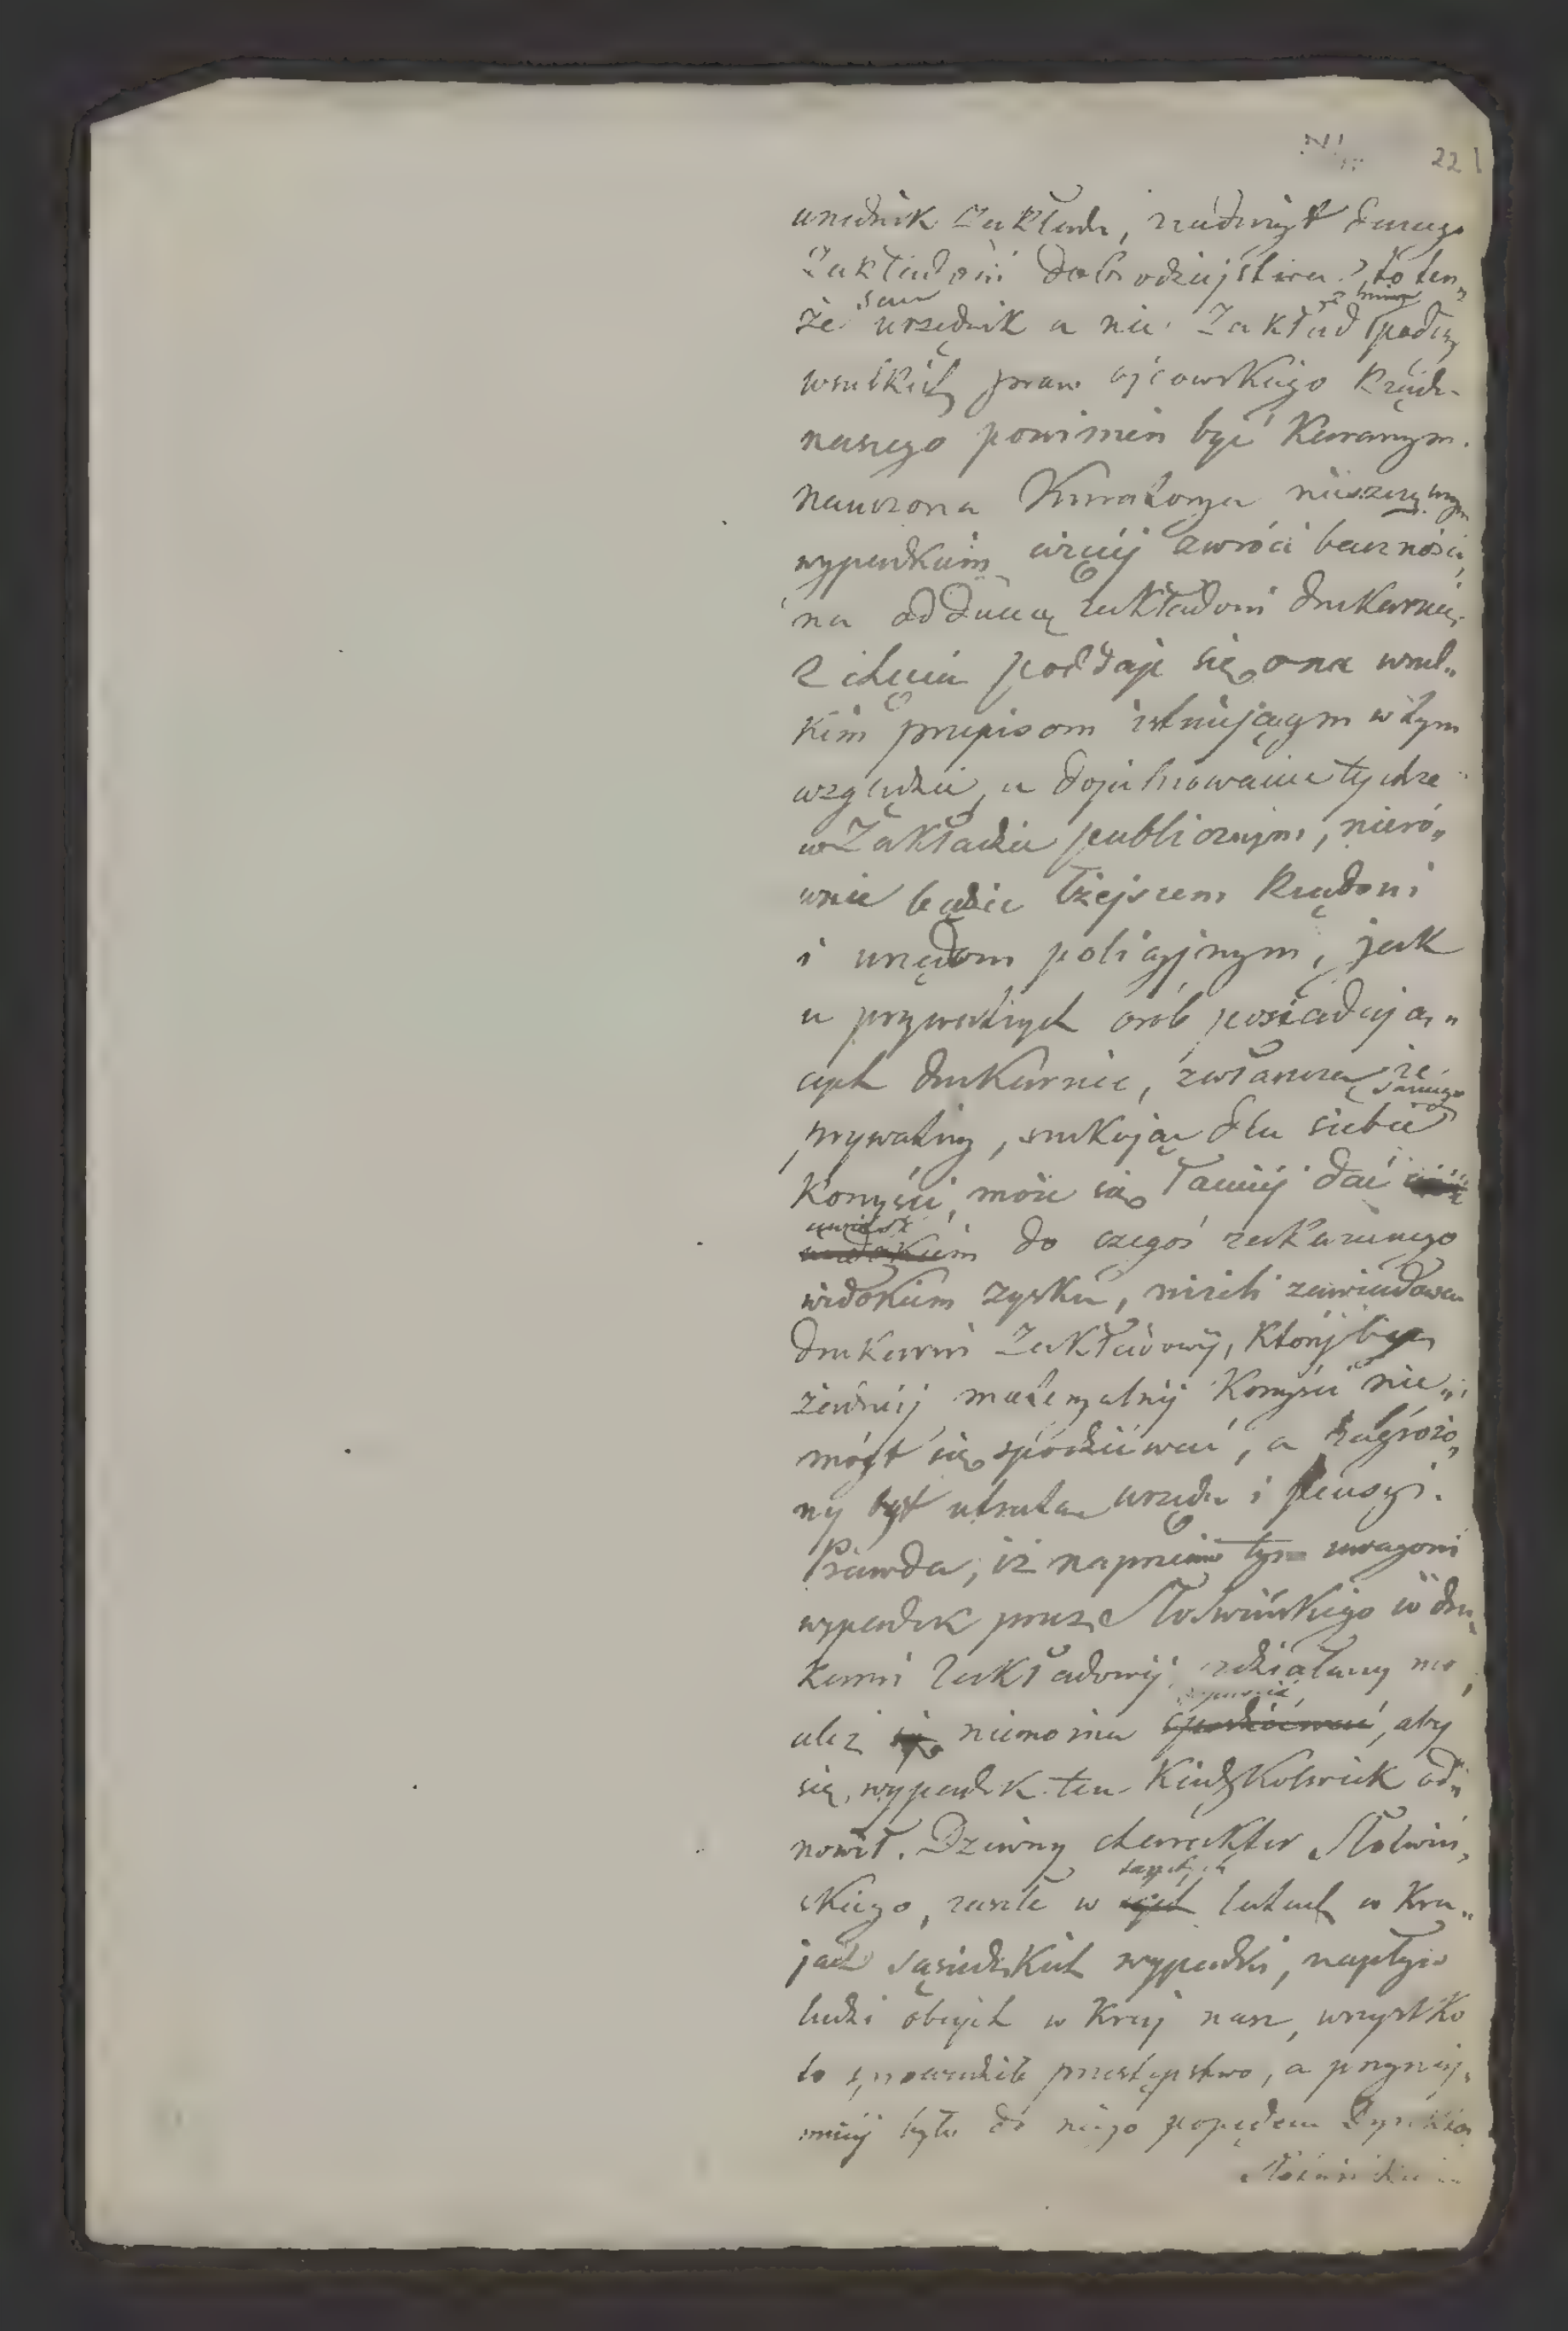 221
urzędnik Zakładu, nadużył danego
Zakładowi dobrodziejstwa, to ten„
że sam urzędnik a nie Zakład podług
wszelkich praw ojcowskiego Rządu
naszego powinien być karanym.
nauczona Kuratorya nieszczęsnym
wypadkiem więcej zwróci baczności
na oddaną zakładowi drukarnię.
Z chęcią poddaje się ona wszel„
kim przepisom istniejącym w tym
względzie, a dopilnowanie tychże
w Zakładzie publicznym, nieró„
wnie będzie lżejszem Rządowi
i urzędom policyjnym, jak
u prywatnych osób posiadają„
cych drukarnie, zwłaszcza, że
prywatny, szukając dla siebie samego
korzyści, może się łatwiej dać
uwieść do czegoś zakazanego
widokiem zysku, niżeli zawiadowca
drukarni Zakładowej, któryby
żadnej materyalnej korzyści nie
mógł się spodziewać, a zagrożo„
ny był utratą urzędu i pensyi.
Prawda, iż naprzeciw tym uwagom
wypadek przez Słotwińskiego w dru„
karni Zakładowej zdziałany
ależ się niemożna spodziewać, aby
się wypadek ten kiedykolwiek od„
nowił. Dziwny charakter Słotwiń„
skiego, zaszłe w latach w kra„
jach sąsiedzkich wypadki, napływ
ludzi obcych w kraj nasz, wszystko
to sprowadziło przestępstwo, a przynaj„
mniej było do niego popędem